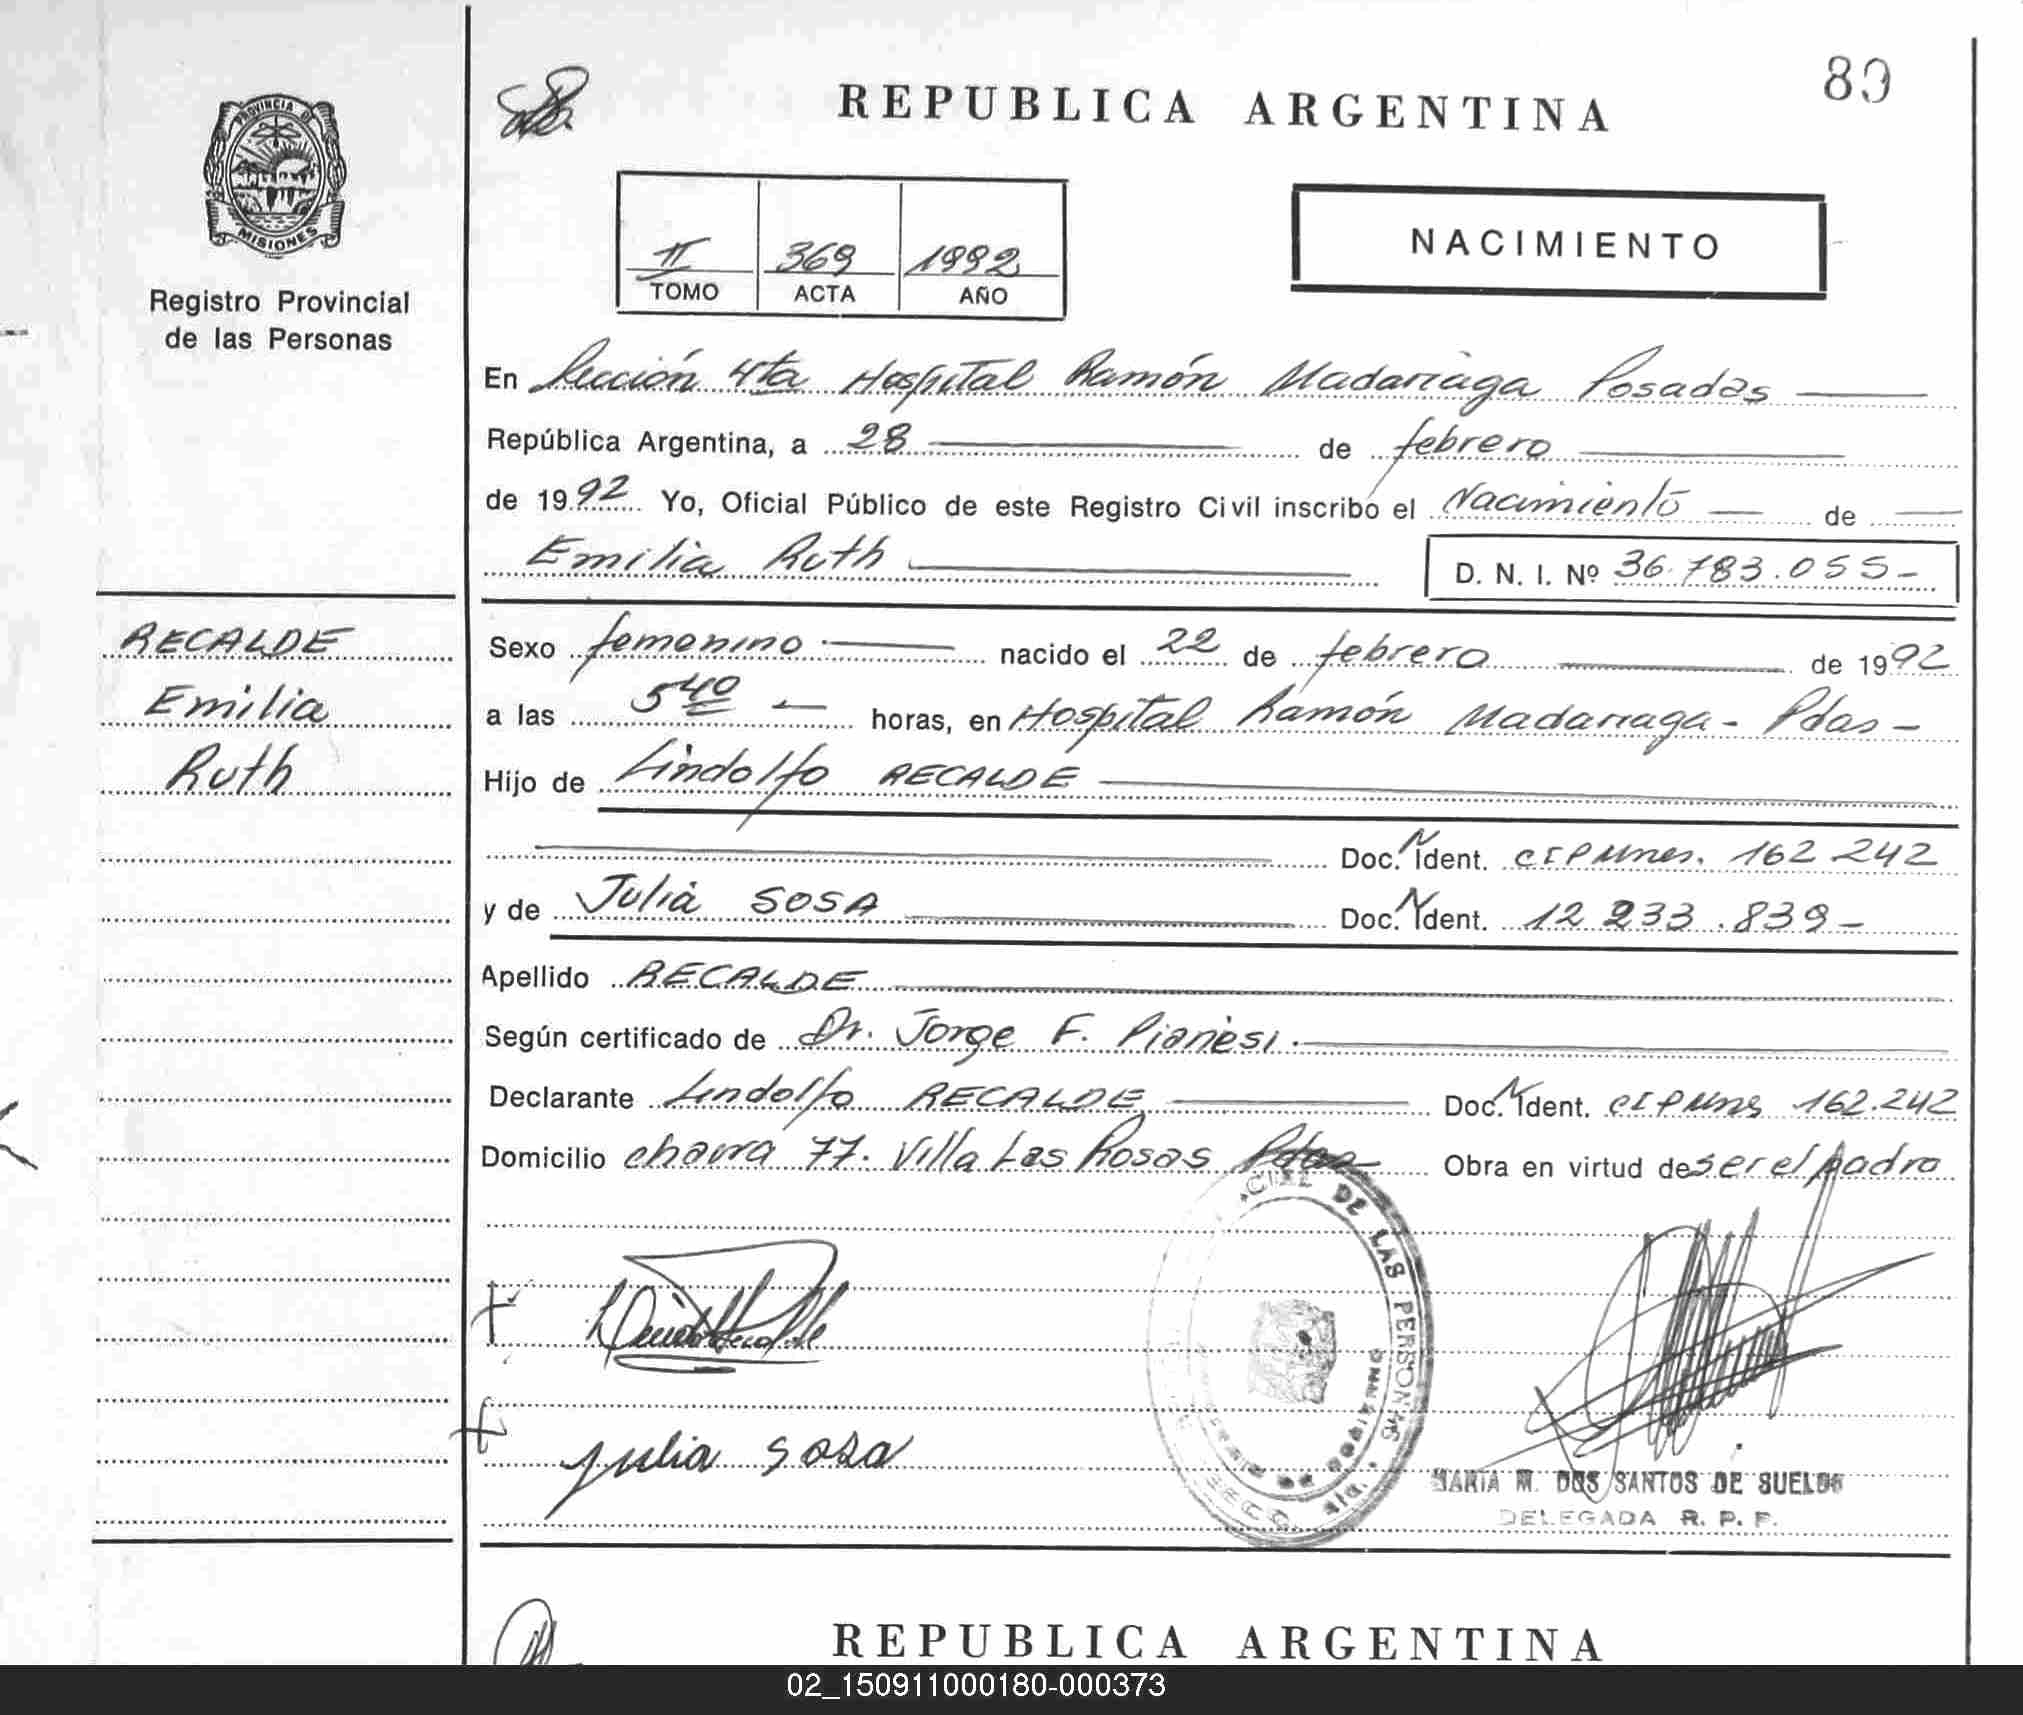 80
REPUBLICA ARGENTINA
PROVINCIA DE
MISIONES
Registro Provincial
de las Personas
II 369 1992
TOMO ACTA AÑO
NACIMIENTO
En Sección 4ta Hospital Ramón Madariaga Posadas
República Argentina, a 28 de febrero
de 1992 Yo, Oficial Público de este Registro Civil inscribo el Nacimiento de
Emilia Ruth D. N. I. Nº 36.783.055-
RECALDE
Emilia
Ruth
Sexo femenino nacido el 22 de febrero de 1992
a las 5 40 horas, en Hospital Ramón Madariaga - Pdas -
Hijo de Lindolfo RECALDE
Doc. Ident. CIPMnes. 162.242
y de Julia SOSA Doc. Ident. 12.233.839-
Apellido RECALDE
Según certificado de Dr. Jorge F. Pianesi.
Declarante Lindolfo RECALDE Doc. Ident. CIPMns 162.242
Domicilio chacra 77. Villa Las Rosas Pdas Obra en virtud de ser el padre
DE LAS PERSONAS
julia sosa
MARIA M. DOS SANTOS DE SUELDO
DELEGADA R. P. P.
REPUBLICA ARGENTINA
02_150911000180-000373